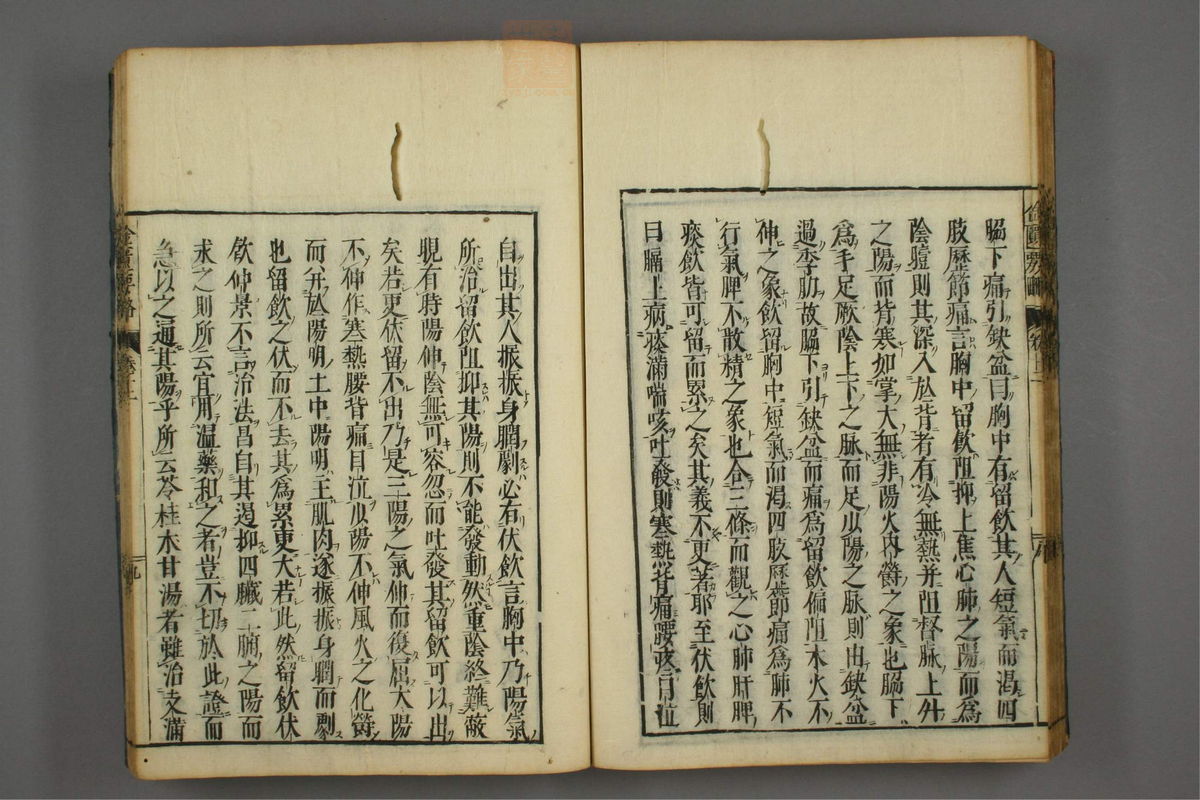 脇下痛引缺盆曰胸中有留飲其人短氣而渴四
肢歷節痛言胸中留飲阻抑上焦心肺之陽而為
陰曀則其深入於背者有冷無熱并阻督脉上升
之陽而背寒如掌大無非陽火內欝之象也脇下
為手足厥陰上下之脉而足少陽之脉則出缺盆
過季肋故脇下引缺盆而痛為留飲偏阻木火不
伸之象飲留胸中短氣而渴四肢歷節痛為肺不
行氣脾不散精之象也合三條而觀之心肺肝脾
痰飲皆可留而累之矣其義不更著耶至伏飲則
曰膈上病痰滿喘咳吐發則寒熱背痛腰疼目泣
自出其人振振身瞤劇必有伏飲言胸中乃陽氣
所治留飲阻抑其陽則不能發動然重陰終難蔽
晛有時陽伸陰無可容忽而吐發其留飲可以出
矣若更伏留不出乃是三陽之氣伸而復屈太陽
不伸作寒熱腰背痛目泣少陽不伸風火之化欝
而并於陽明土中陽明主肌肉遂振振身瞤而劇
也留飲之伏而不去其為累更大若此然留飲伏
飲仲景不言治法昌自其遏抑四臟三腑之陽而
求之則所云宜用溫藥和之者豈不切於此證而
急以之通其陽乎所云苓桂朮甘湯者雖治支滿
金匱要畧
卷十二
九